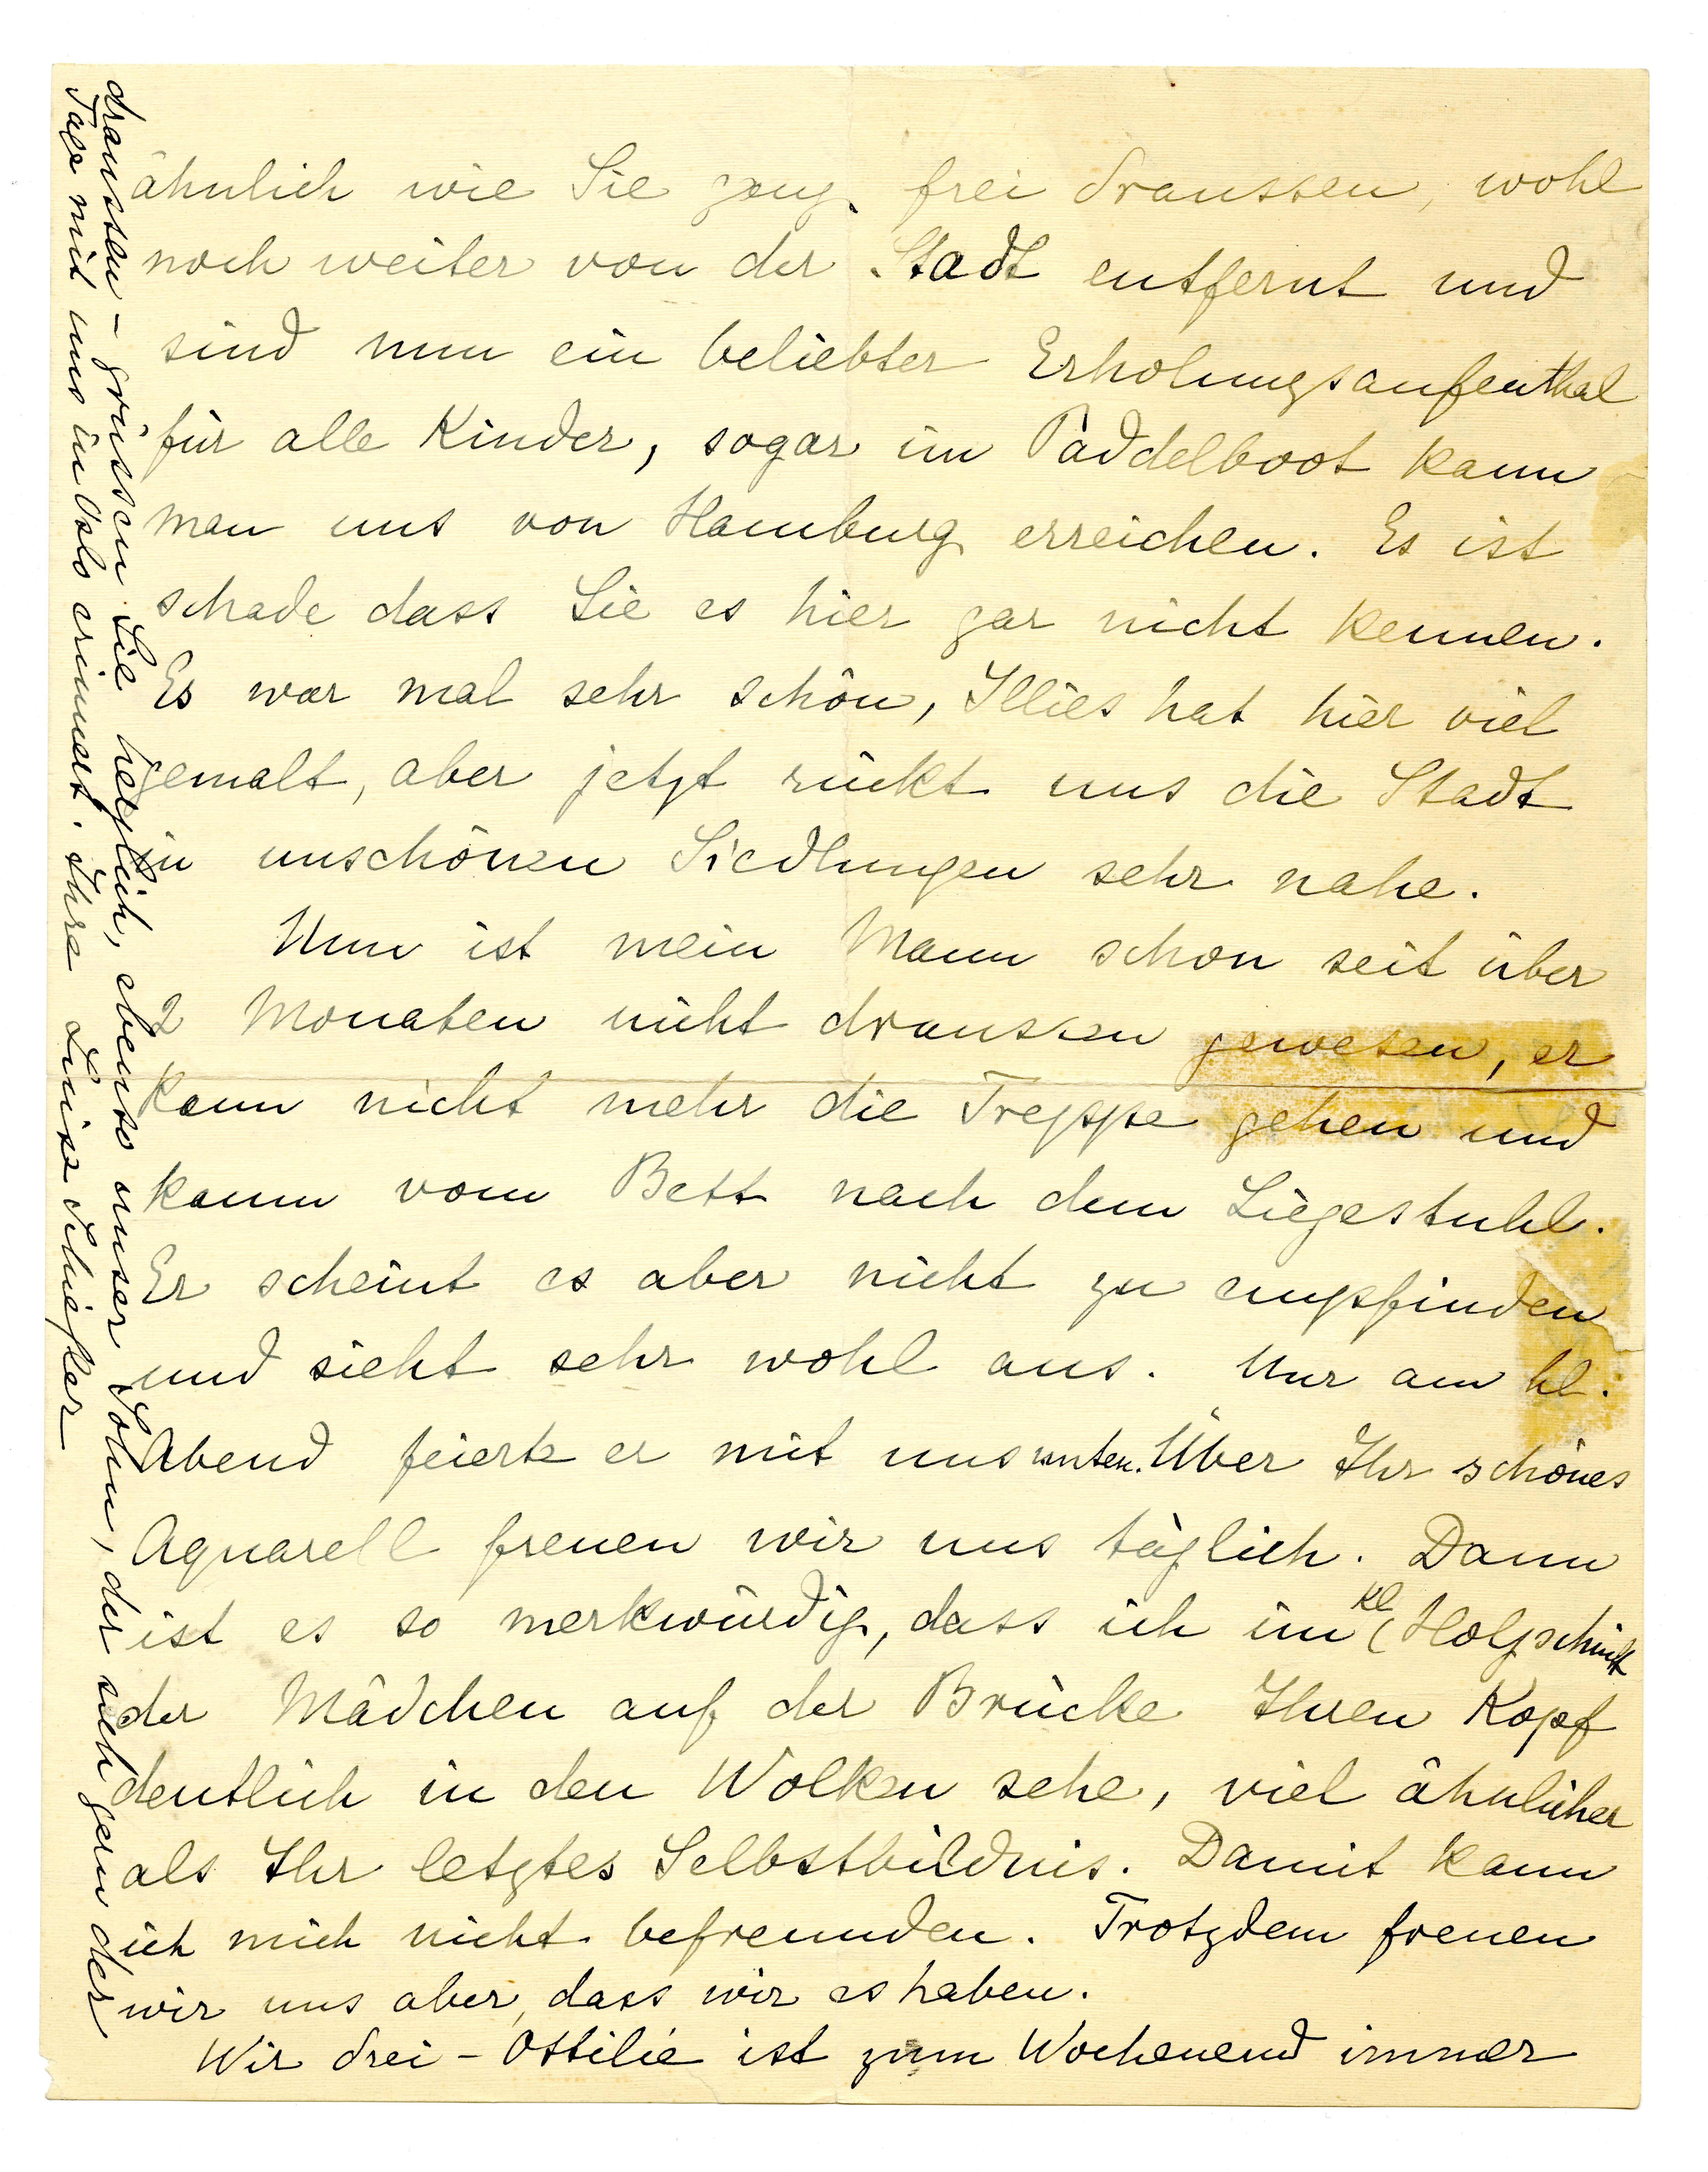 ähnlich wie Sie ganz frei draussen, wohl
noch weiter von der Stadt entfernt und
sind nun ein beliebter Erholungsaufenthal
für alle Kinder, sogar im Paddelboot kann
man uns von Hamburg erreichen. Es ist
schade dass Sie es hier gar nicht kennen.
Es war mal sehr schön, Illies hat hier viel
gemalt, aber jetzt rückt uns die Stadt
in unschönen Siedlungen sehr nahe.
Nun ist mein Mann schon seit über
2 Monaten nicht draussen gewesen, er
kann nicht mehr die Treppe gehen und
kaum vom Bett nach dem Liegestuhl.
Er scheint es aber nicht zu empfinden
und sieht sehr wohl aus. Nur am hl.
Abend feierte er mit uns unten. Über Ihr schönes
Aquarell freuen wir uns täglich. Dann
ist es so merkwürdig, dass ich im kl Holzschnitt
der Mädchen auf der Brücke Ihren Kopf
deutlich in den Wolken sehe, viel ähnlicher
als Ihr letztes Selbstbildnis. Damit kann
ich mich nicht befreunden. Trotzdem freuen
wir uns aber, dass wir es haben.
Wir drei – Ottilie ist zum Wochenend immer
draussen – grüssen Sie herzlich, ebenso unser Sohn, der sich gern der
Tage mit uns in Oslo erinnert. Ihre Luise Schiefler